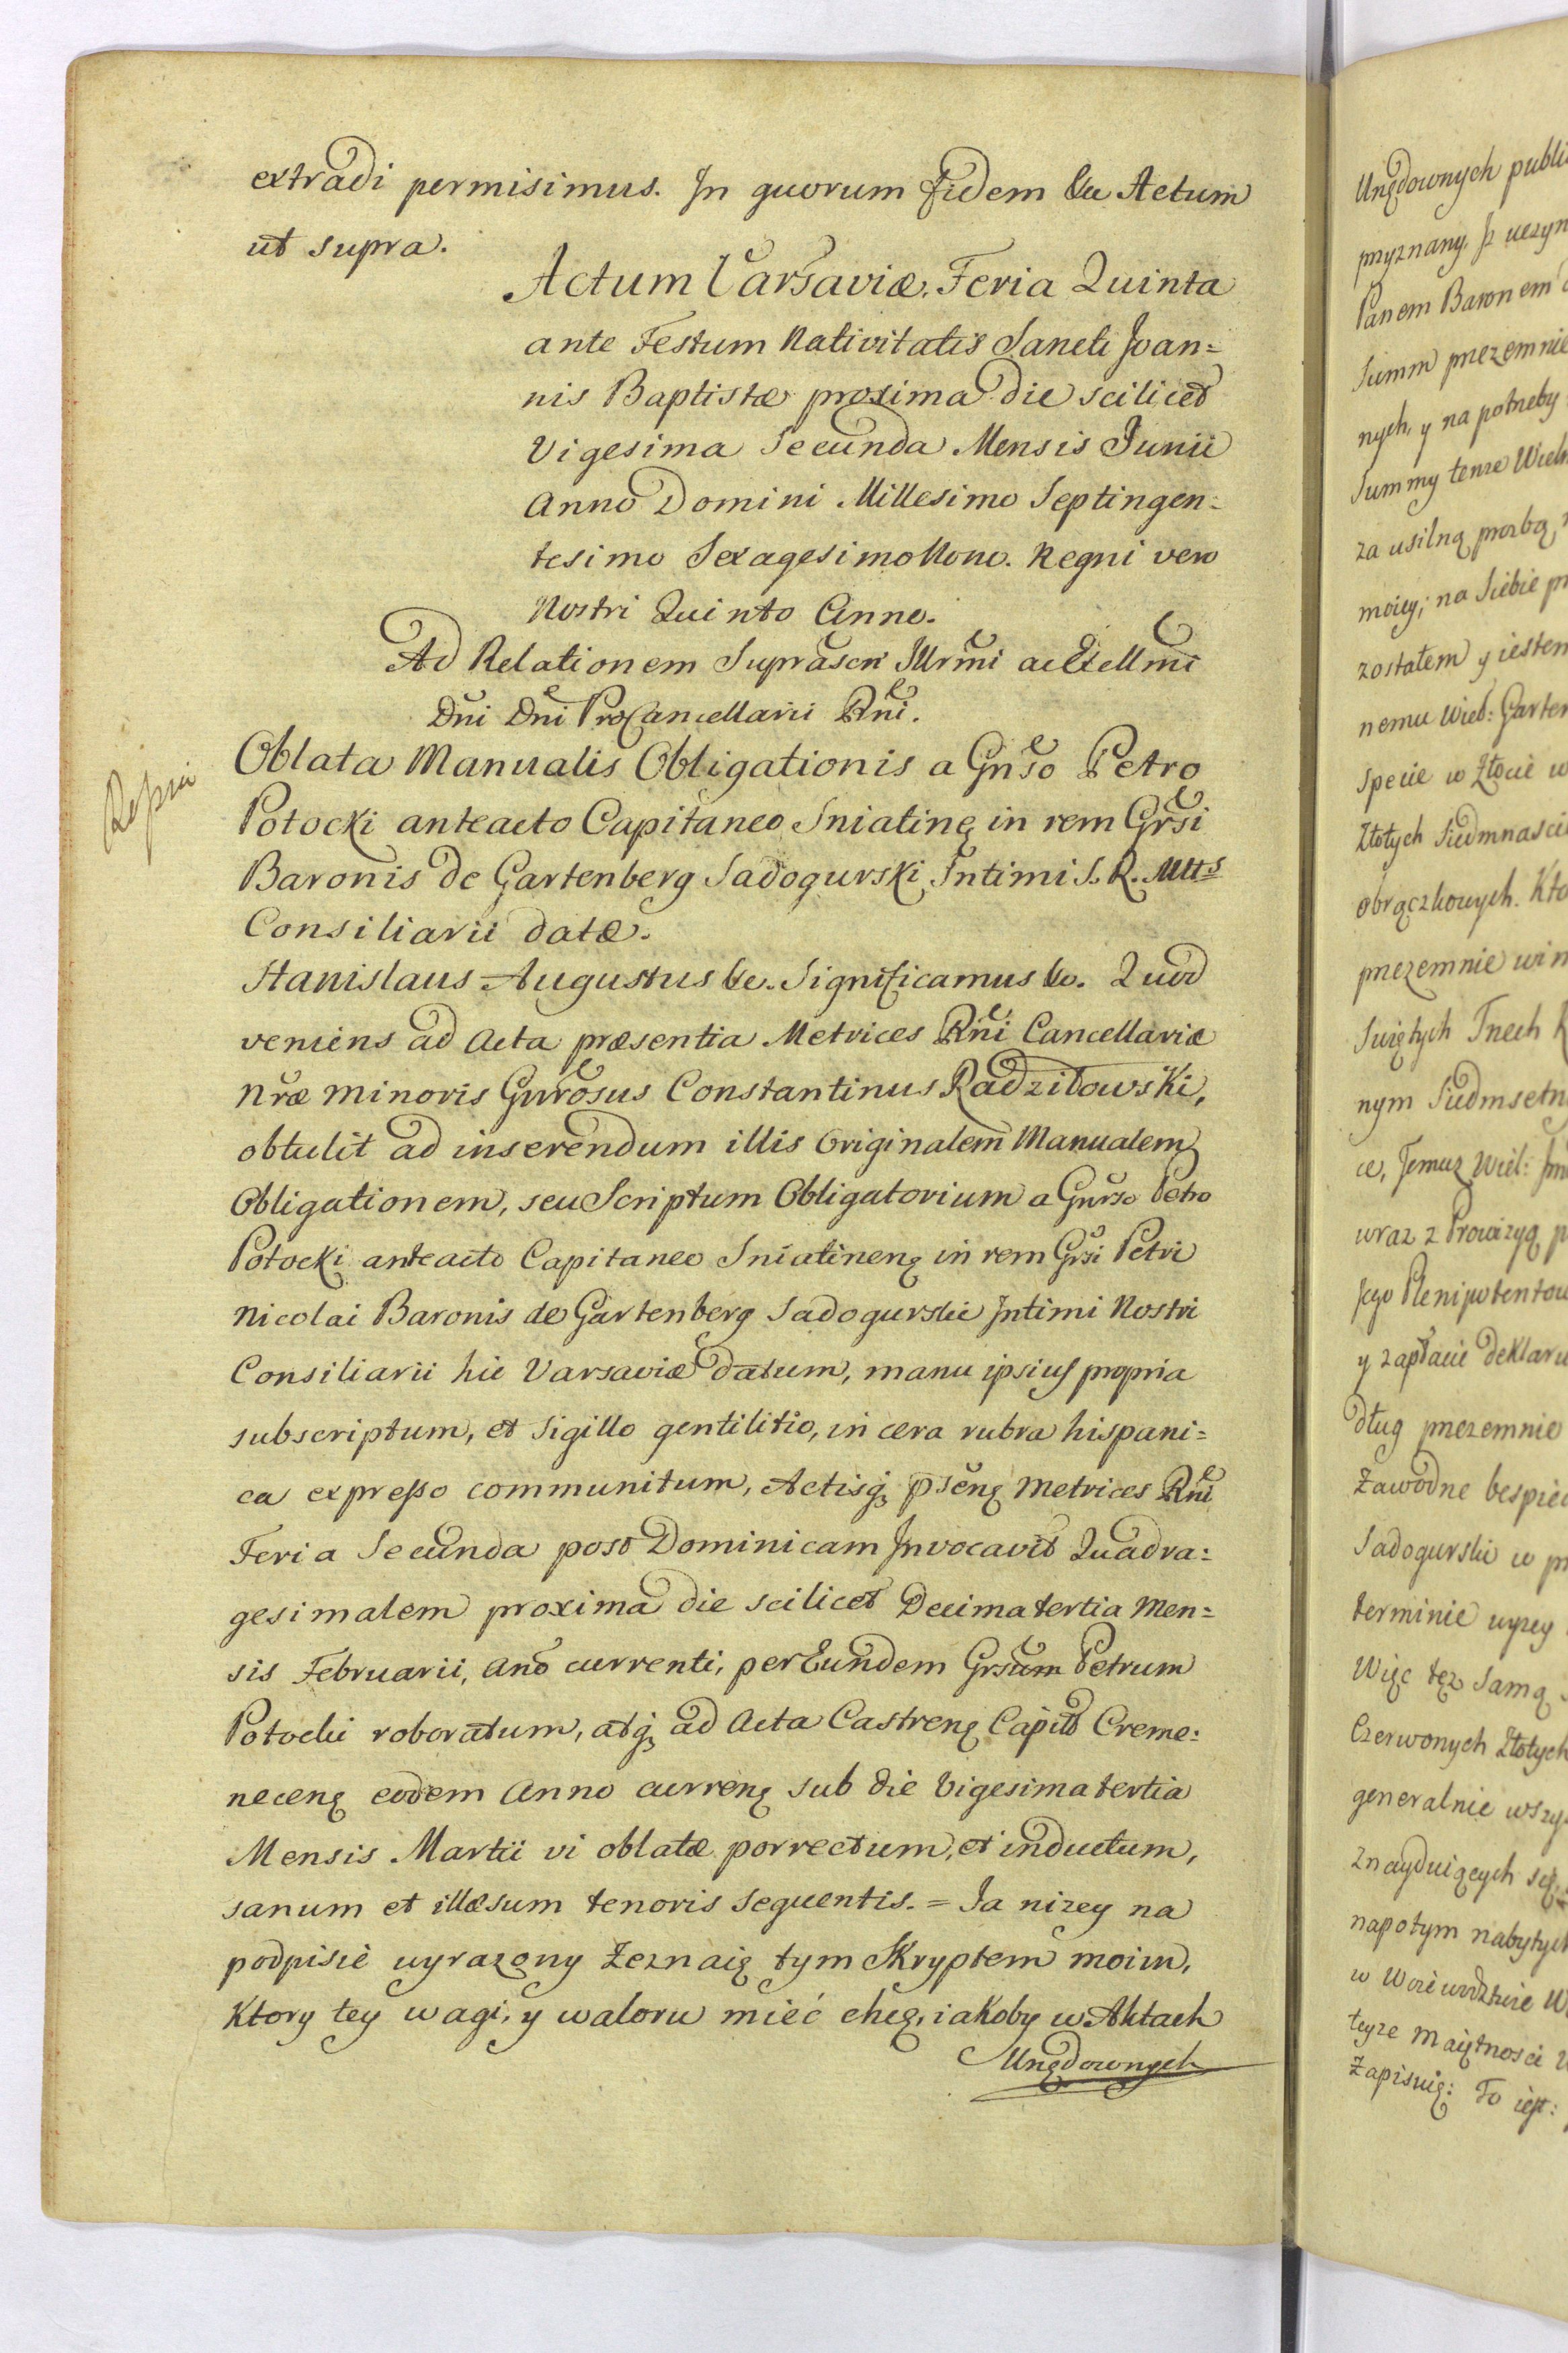 extradi permisimus. In quorum fidem &c Actum
ut supra.
Actum Varsaviæ, Feria Quinta
ante Festum Nativitatis Sancti Joan=
nis Baptistæ proxima die scilicet
Vigesima Secunda Mensis Junii
Anno Domini Millesimo Septingen=
tesimo Sexagesimo Nono. Regni vero
Nostri Quinto Anno.
Ad Relationem Suprascri Illrmi ac Exellmi
Dni Dni ProCancellarii Rni.
Oblata Manualis Obligationis a Gnso Petro
Potocki anteacto Capitaneo Sniatinę in rem Grsi
Baronis de Gartenberg Sadogurski Intimi S. R. Mtts
Consiliarii datæ.
Stanislaus Augustus &c. Significamus &c. Quod
veniens ad Acta præsentia Metrices Rni Cancellariæ
Nræ Minoris Gnrosus Constantinus Radziłowski,
obtulit ad inserendum illis Originalem Manualem
Obligationem, seu Scriptum Obligatorium a Gnrso Petro
Potocki anteacto Capitaneo Sniatinenę in rem Grsi Petri
Nicolai Baronis de Gartenberg Sadogurski Intimi Nostri
Consiliarii hic Varsaviæ datum, manu ipsius propria
subscriptum, et Sigillo gentilitio, in cera rubra hispani=
ca expresso communitum, Actisq; psenę Metrices Rni
Feria Secunda post Dominicam Invocavit Quadra=
gesimalem proxima die scilicet Decima tertia Men=
sis Februarii, Ano currenti, per Eundem Grsum Petrum
Potocki roboratum, atq; ad Acta Castrenę Capitt Creme=
necenę eodem Anno currenę sub die Vigesima tertia
Mensis Martii vi oblatæ porrectum, et inductum,
sanum et illæsum tenoris sequentis. = Ja nizey na
podpisie wyrazony Zeznaię tym Skryptem moim,
Ktory tey wagi, y waloru mieć chcę, iakoby w Aktach
Urzędownych
Urzędownych publi
przyznany, Jż uczyn
Panem Baronem
Summ przezemnie
nych, y na potrzeby
Summy tenze Wielm
za usilną prozbą
moiey; na Siebie pr
zostałem y iestem
nemu Wiel: Garten
Specie w Złocie w
Złotych Siedmnaści
obrączkowych. Kto
przezemnie win
Swiętych Trzech K
nym Siedmsetn
ce, Jemuz Wiel: Jm
wraz z Prowizyą p
Jego Plenipotentow
y zapłacić deklaru
dług przezemnie
Zawodne bespiec
Sadogurski w pr
terminie wyzey
Więc tęz Samą
Czerwonych Złotych
generalnie wszy
znayduiących się
napotym nabytych
w Woiewodztwie W
teyze Maiętnosci
Zapisuię: To iest: